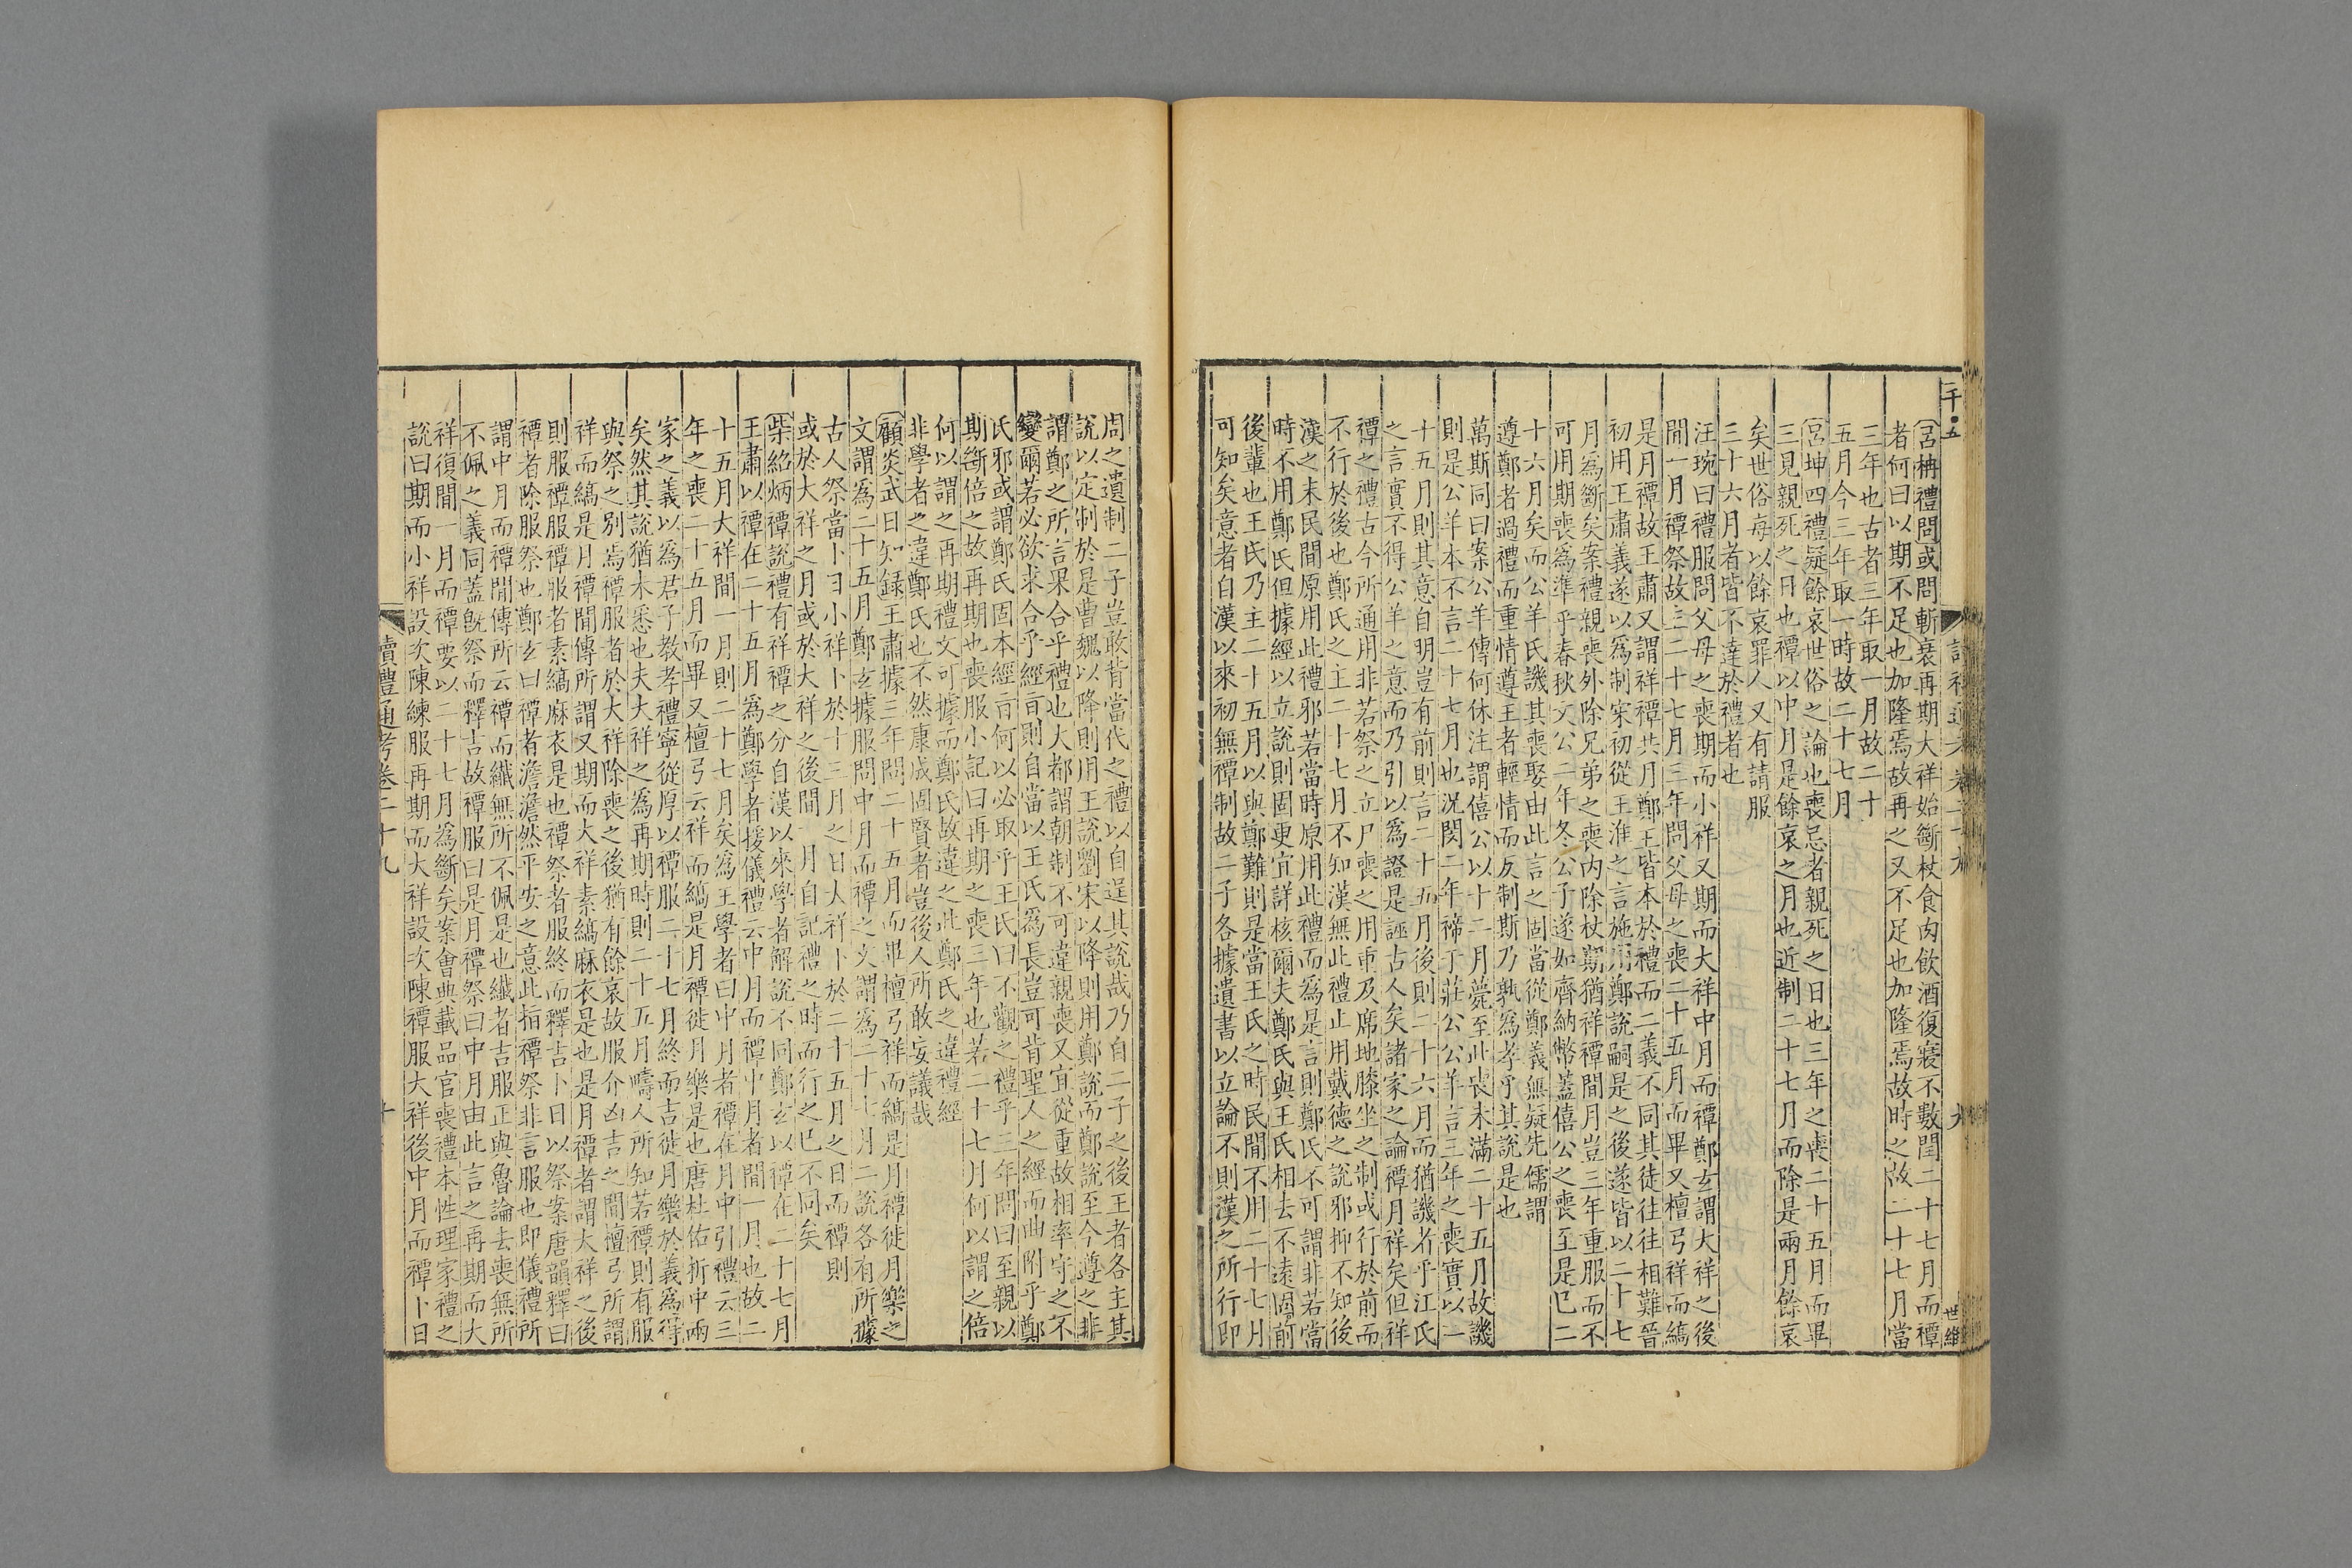 二千〇五
讀禮通考卷二十九
九
世維
呂柟禮問或問斬衰再期大祥始斷杖食肉飲酒復寢不數閏二十七月而禫
者何曰以期不足也加隆焉故再之又不足也加隆焉故時之故二十七月當
三年也古者三年取一月故二十
五月今三年取一時故二十七月
呂坤四禮疑餘哀世俗之論也喪忌者親死之日也三年之喪二十五月而畢
三見親死之日也禫以中月是餘哀之月也近制二十七月而除是兩月餘哀
矣世俗每以餘哀罪人又有請服
三十六月者皆不達於禮者也
汪琬曰禮服問父母之喪期而小祥又期而大祥中月而禫鄭玄謂大祥之後
閒一月禫祭故主二十七月三年問父母之喪二十五月而畢又檀弓祥而縞
是月禫故王肅又謂祥禫共月鄭王皆本於禮而二義不同其徒往往相難晉
初用王肅義遂以為制宋初從王淮之言施用鄭說嗣是之後遂皆以二十七
月為斷矣案禮親喪外除兄弟之喪內除杖期猶祥禫間月豈三年重服而不
可用期喪為準乎春秋文公二年冬公子遂如齊納幣蓋僖公之喪至是已二
十六月矣而公羊氏譏其喪娶由此言之固當從鄭義無疑先儒謂
遵鄭者過禮而重情遵王者輕情而反制斯乃孰為孝乎其說是也
萬斯同曰案公羊傳何休注謂僖公以十二月薨至此喪未滿二十五月故譏
則是公羊本不言二十七月也況閔二年禘于莊公公羊言三年之喪實以二
十五月則其意自明豈有前則言二十五月後則二十六月而猶譏者乎江氏
之言實不得公羊之意而乃引以為證是誣古人矣諸家之論禫月祥矣但祥
禫之禮古今所通用非若祭之立尸喪之用重及席地膝坐之制或行於前而
不行於後也鄭氏之主二十七月不知漢無此禮止用戴德之說邪抑不知後
漢之末民間原用此禮邪若當時原用此禮而為是言則鄭氏不可謂非若當
時不用鄭氏但據經以立說則固更宜詳核爾夫鄭氏與王氏相去不遠固前
後輩也王氏乃主二十五月以與鄭難則是當王氏之時民間不用二十七月
可知矣意者自漢以來初無禫制故二子各據遺書以立論不則漢之所行即
周之遺制二子豈敢背當代之禮以自逞其說哉乃自二子之後王者各主其
說以定制於是曹魏以降則用王說劉宋以降則用鄭說而鄭說至今遵之非
謂鄭之所言果合乎禮也大都謂朝制不可違親喪又宜從重故相率守之不
變爾若必欲求合乎經言則自當以王氏為長豈可背聖人之經而曲附乎鄭
氏邪或謂鄭氏固本經言何以必取乎王氏曰不觀之禮乎三年問曰至親以
期斷倍之故再期也喪服小記曰再期之喪三年也若二十七月何以謂之倍
何以謂之再期禮文可據而鄭氏故違之此鄭氏之違禮經
非學者之違鄭氏也不然康成固賢者豈後人所敢妄議哉
顧炎武日知錄王肅據三年問二十五月而畢檀弓祥而縞是月禫徙月樂之
文謂為二十五月鄭玄據服問中月而禫之文謂為二十七月二說各有所據
古人祭當卜日小祥卜於十三月之日大祥卜於二十五月之日而禫則
或於大祥之月或於大祥之後間一月自記禮之時而行之已不同矣
柴紹炳禫說禮有祥禫之分自漢以來學者解說不同鄭玄以禫在二十七月
王肅以禫在二十五月為鄭學者援儀禮云中月而禫中月者間一月也故二
十五月大祥間一月則二十七月矣為王學者曰中月者禫在月中引禮云三
年之喪二十五月而畢又檀弓云祥而縞是月禫徙月樂是也唐杜佑折中兩
家之義以為君子教孝禮寧從厚以禫服二十七月終而吉徙月樂於義為得
矣然其說猶未悉也夫大祥之為再期時則二十五月疇人所知若禫則有服
與祭之別焉禫服者於大祥除喪之後猶有餘哀故服介凶吉之間檀弓所謂
祥而縞是月禫閒傳所謂又期而大祥素縞麻衣是也是月禫者謂大祥之後
則服禫服禫服者素縞麻衣是也禫祭者服終而釋吉卜日以祭案唐韻釋曰
禫者除服祭也鄭玄曰禫者澹澹然平安之意此指禫祭非言服也即儀禮所
謂中月而禫閒傳所云禫而纖無所不佩是也纖者吉服正與魯論去喪無所
不佩之義同蓋既祭而釋吉故禫服曰是月禫祭曰中月由此言之再期而大
祥復間一月而禫要以二十七月為斷矣案會典載品官喪禮本性理家禮之
說曰期而小祥設次陳練服再期而大祥設次陳禫服大祥後中月而禫卜日
讀禮通考卷二十九
十